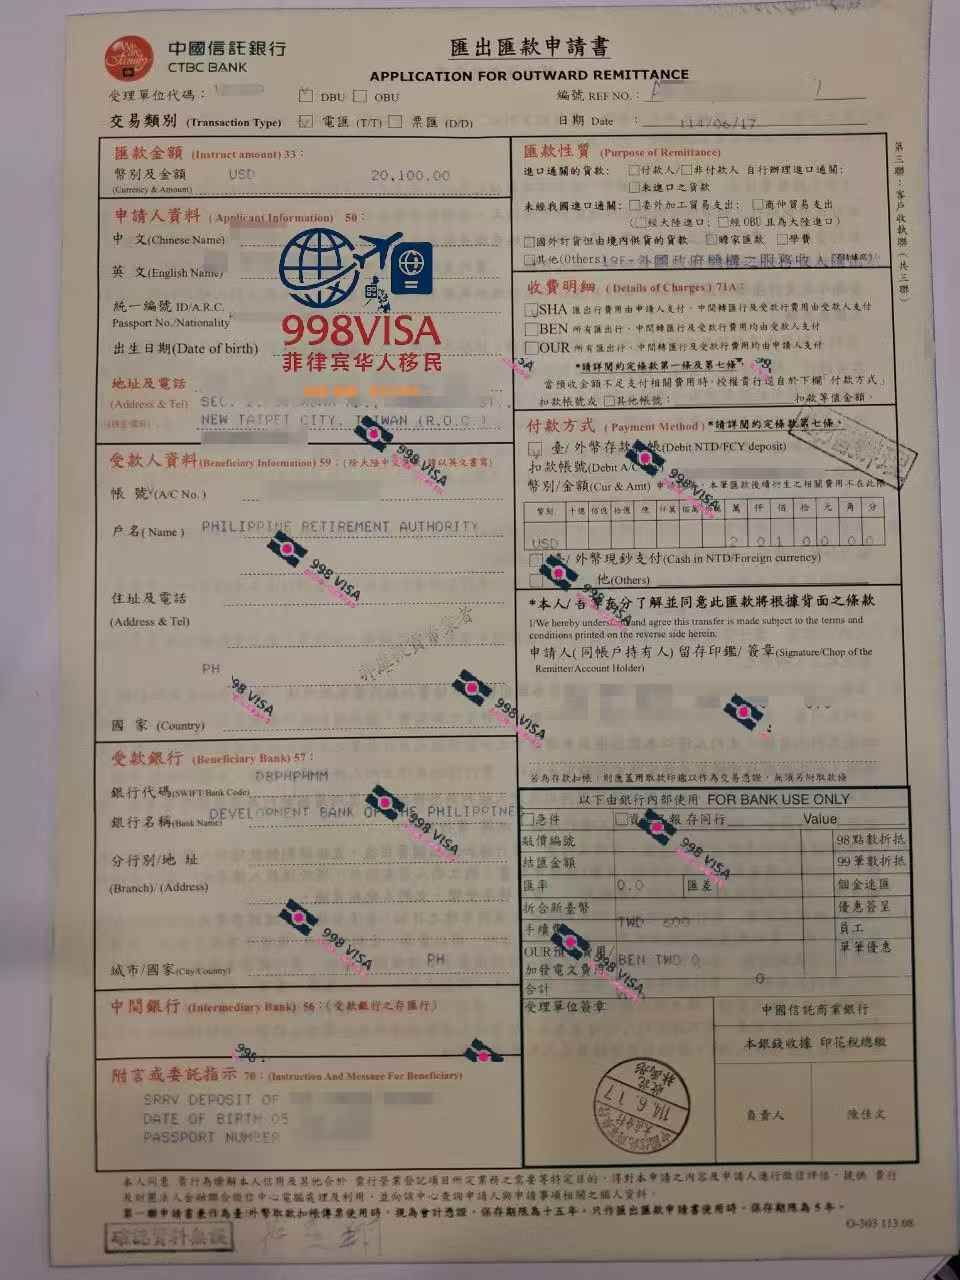 中國信託銀行
CTBC BANK
匯出匯款申請書
APPLICATION FOR OUTWARD REMITTANCE
受理單位代碼：
DBU OBU
編號 REF NO.：
交易類別 (Transaction Type) 電匯 (T/T) 票匯 (D/D)
日期 Date ： 114/06/17
第三聯：客戶收執聯（共三聯）
匯款金額 (Instruct amount) 33：
幣別及金額 USD 20,100.00
(Currency & Amount)
申請人資料 (Applicant Information) 50：
中 文(Chinese Name)
英 文(English Name)
統一編號 ID/A.R.C.
Passport No./Nationality
出生日期(Date of birth)
998VISA
菲律宾华人移民
地址及電話
(Address & Tel) SEC. 2,
NEW TAIPEI CITY, TAIWAN (R.O.C.)
受款人資料(Beneficiary Information) 59：
帳 號(A/C No.)
戶名(Name) PHILIPPINE RETIREMENT AUTHORITY
住址及電話
(Address & Tel)
PH
國 家 (Country)
受款銀行 (Beneficiary Bank) 57：
銀行代碼(SWIFT Bank Code) DBPHPHMM
銀行名稱(Bank Name) DEVELOPMENT BANK OF THE PHILIPPINES
分行別/地 址
(Branch)/ (Address)
城市/國家(City/Country) PH
中間銀行 (Intermediary Bank) 56：(受款銀行之存匯行)
附言或委託指示 70：(Instruction And Message For Beneficiary)
SRRV DEPOSIT OF
DATE OF BIRTH 05
PASSPORT NUMBER
匯款性質 (Purpose of Remittance)
進口通關的貨款： 付款人/ 非付款人 自行辦理進口通關：
未進口之貨款
未經我國進口通關： 委外加工貿易支出； 商仲貿易支出
( 經大陸進口； 經 OBU 且為大陸進口)
國外訂貨但由境內供貨的貨款 贍家匯款 學費
其他(Others) 19F-外國政府機構之服務收入匯出
收費明細 (Details of Charges) 71A：
SHA 匯出行費用由申請人支付，中間轉匯行及受款行費用由受款人支付
BEN 所有匯出行、中間轉匯行及受款行費用均由受款人支付
OUR 所有匯出行、中間轉匯行及受款行費用均由申請人支付
*請詳閱約定條款第一條及第七條。
當預收金額不足支付相關費用時，授權貴行逕自於下欄「付款方式」
扣款帳號或 其他帳號： 扣款等值金額。
付款方式 (Payment Method) *請詳閱約定條款第七條。
臺/ 外幣存款 帳(Debit NTD/FCY deposit)
扣款帳號(Debit A/C
幣別/金額(Cur & Amt) 本筆匯款後續衍生之相關費用不在此限
幣別 十億 億 萬 仟 佰 拾 元 角 分
USD 2 0 1 0 0 0 0
外幣現鈔支付(Cash in NTD/Foreign currency)
他(Others)
*本人/ 充分了解並同意此匯款將根據背面之條款
I/We hereby understand and agree this transfer is made subject to the terms and
conditions printed on the reverse side herein.
申請人( 同帳戶持有人) 留存印鑑/ 簽章(Signature/Chop of the
Remitter/Account Holder)
若為存款扣帳，則應蓋用取款印鑑以作為交易憑證，無須另附取款條
以下由銀行內部使用 FOR BANK USE ONLY
急件 存同行 Value
報價編號 98點數折抵
結匯金額 99筆數折抵
匯率 0.0 匯差 個金速匯
折合新臺幣 優惠簽呈
手續費 TWD 600 員工
OUR 單筆優惠
加發電文費用 BEN TWD 0
合計 0
受理單位簽章
中國信託商業銀行
本銀錢收據 印花稅總繳
負責人 陳佳文
114. 6. 17
998 VISA
本人同意 貴行為瞭解本人信用及其他合於 貴行營業登記項目所定業務之需要等特定目的，得對本申請之內容及申請人進行徵信評估，提供 貴行
及財團法人金融聯合徵信中心電腦處理及利用，並向該中心查詢申請人與申請事項相關之個人資料。
第一聯申請書兼作為臺/外幣取款扣帳傳票使用時，視為會計憑證，保存期限為十五年。只作匯出匯款申請書使用時，保存期限為 5 年。
O-303 113.08